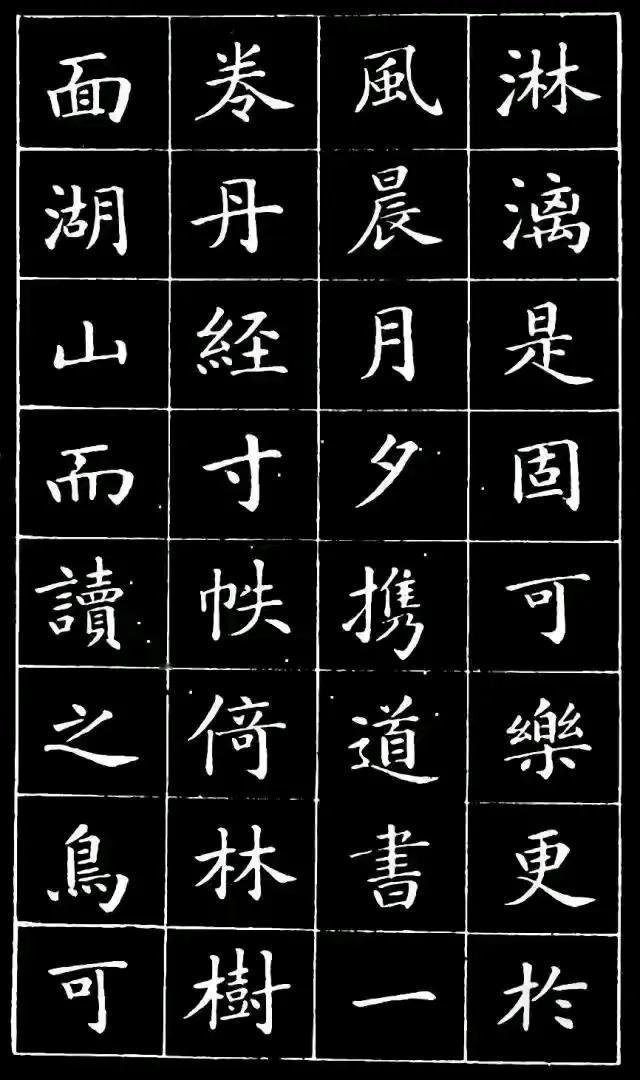 淋漓是固可樂更於
風晨月夕携道書一
卷丹經寸帙倚林樹
面湖山而讀之鳥可